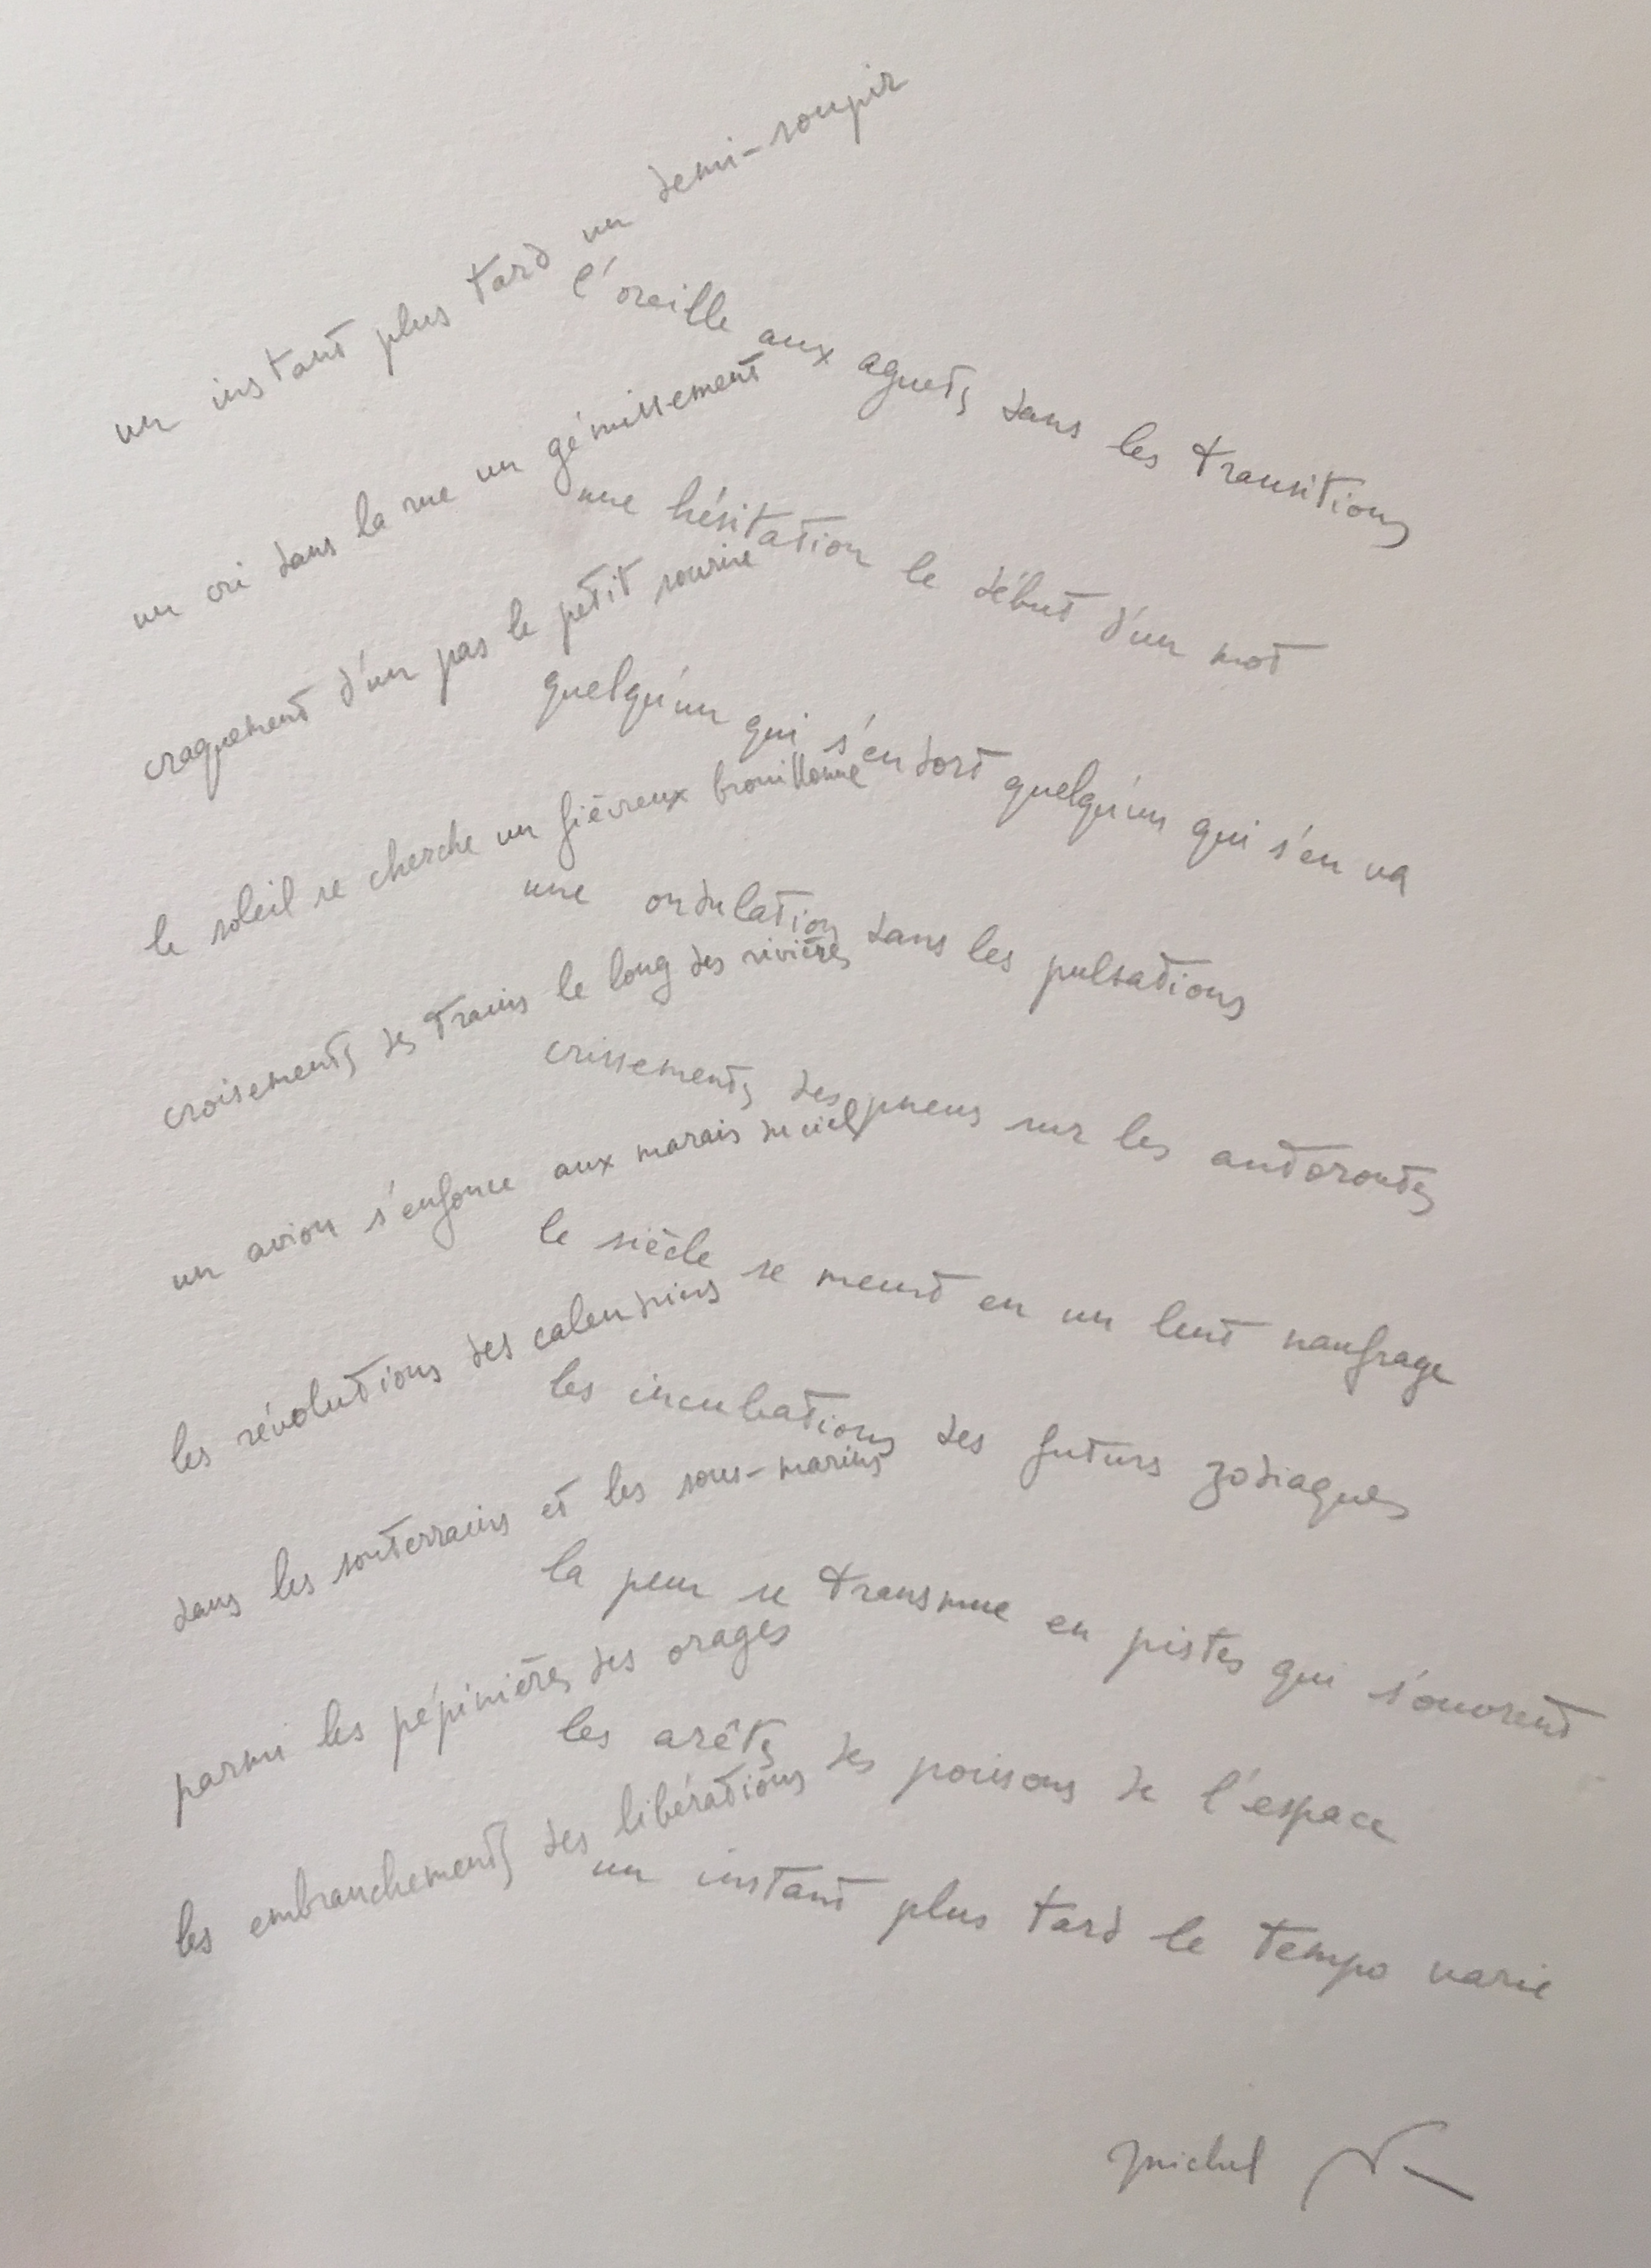 un instant plus tard un demi-soupir
l'oreille aux aguets dans les transitions
un cri dans la rue un gémissement
une hésitation le début d'un mot
craquement d'un pas le petit sourire
quelqu'un qui s'endort quelqu'un qui s'en va
le soleil se cherche un fiévreux brouillonne
une ondulation dans les pulsations
croisements des trains le long des rivières
crissements des pneus sur les autoroutes
un avion s'enfonce aux marais du ciel
le siècle se meurt en un lent naufrage
les révolutions des calendriers
les incubations des futurs zodiaques
dans les souterrains et les sous-marins
la peur se transmue en pistes qui s'ouvrent
parmi les pépinières des orages
les arêtes des poisons de l'espace
les embranchements des libérations
un instant plus tard le tempo varie
Michel